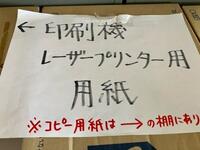 ← 印刷機
レーザープリンター用
用紙
※コピー用紙は→の棚にあり